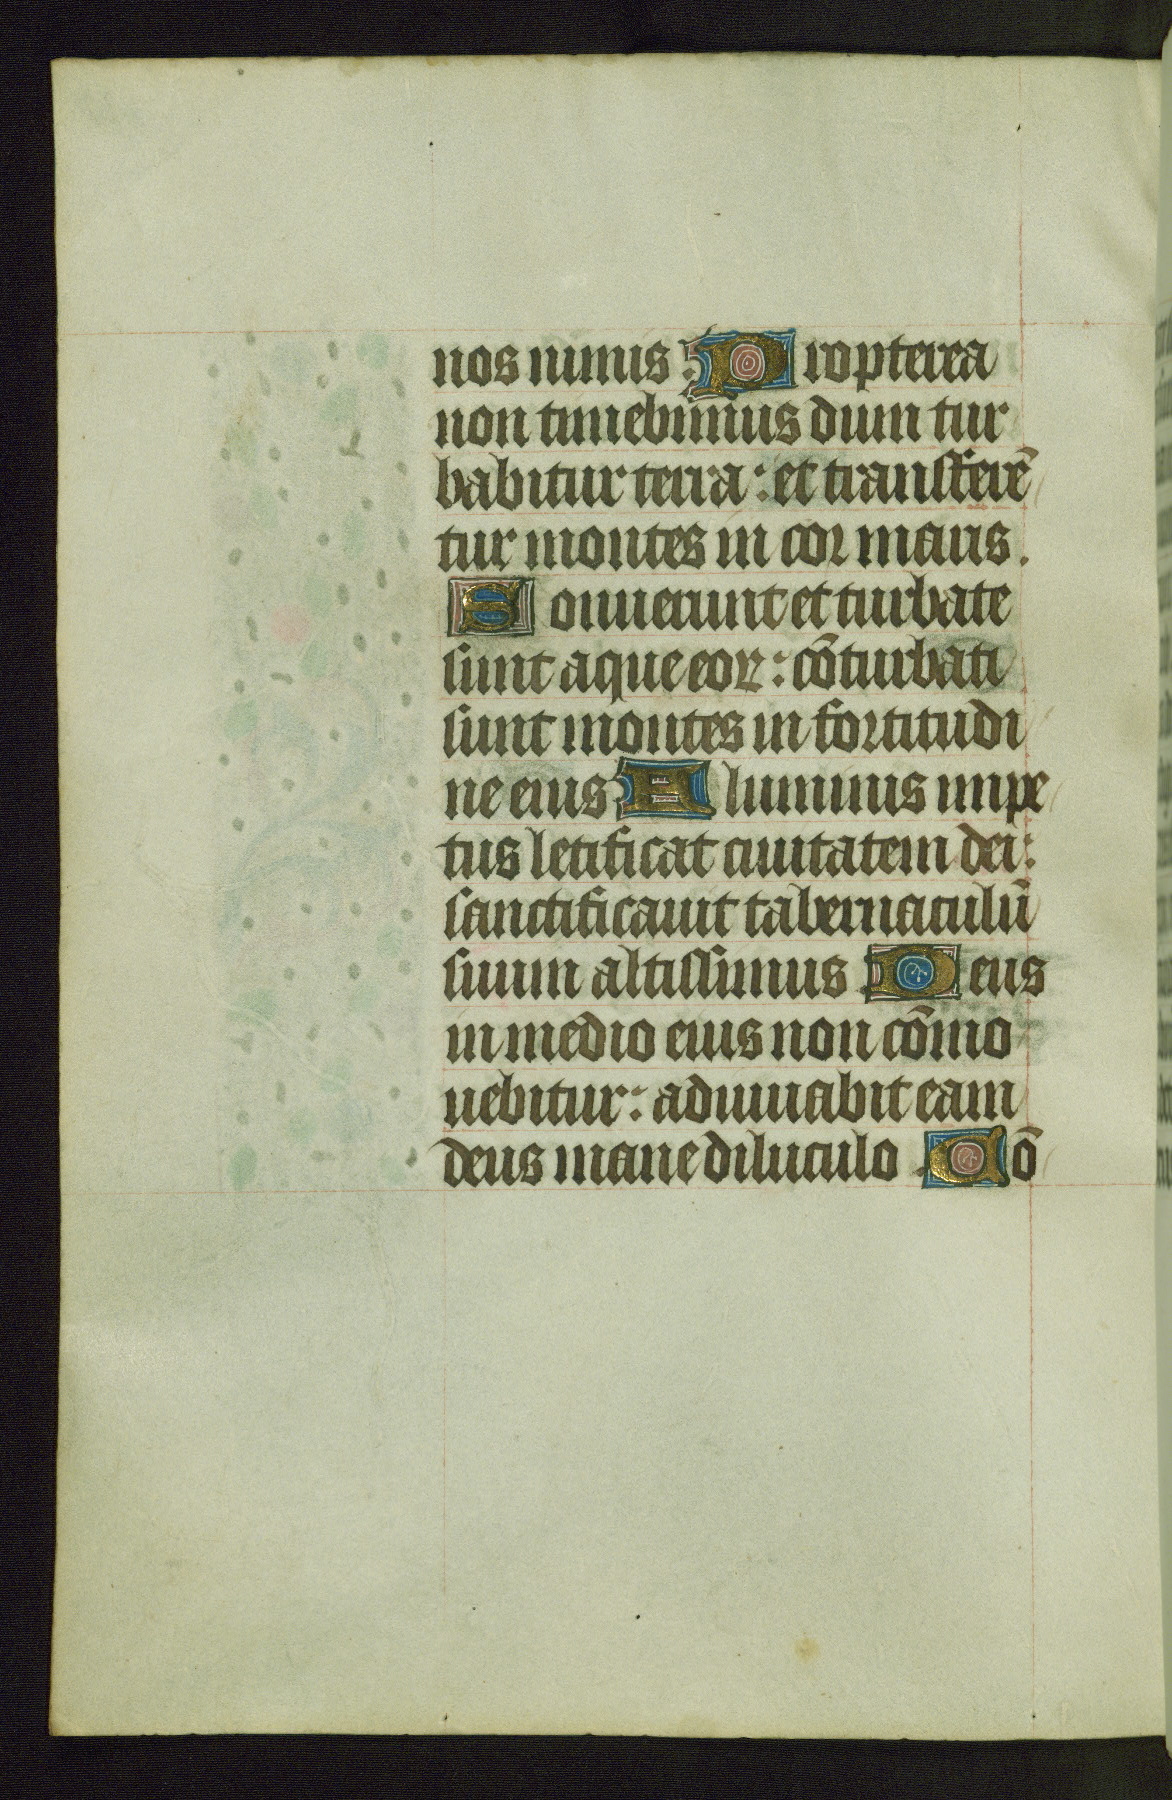 nos nimis: Propterea
non timebimus dum tur
babitur terra: et transferē
tur montes in cor maris.
Sonuerunt et turbate
sunt aque eoꝝ: cōturbati
sunt montes in fortitudi
ne eius: Fluminis impe
tus letificat ciuitatem dei:
sanctificauit tabernaculū
suum altissimus. Deus
in medio eius non cōmo
uebitur: adiuuabit eam
deus mane diluculo. Cō